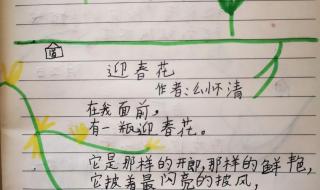 迎春花
作者:幺怀清
在我面前,
有一瓶迎春花。
它是那样的开朗,那样的鲜艳,
它披着最闪亮的披风,